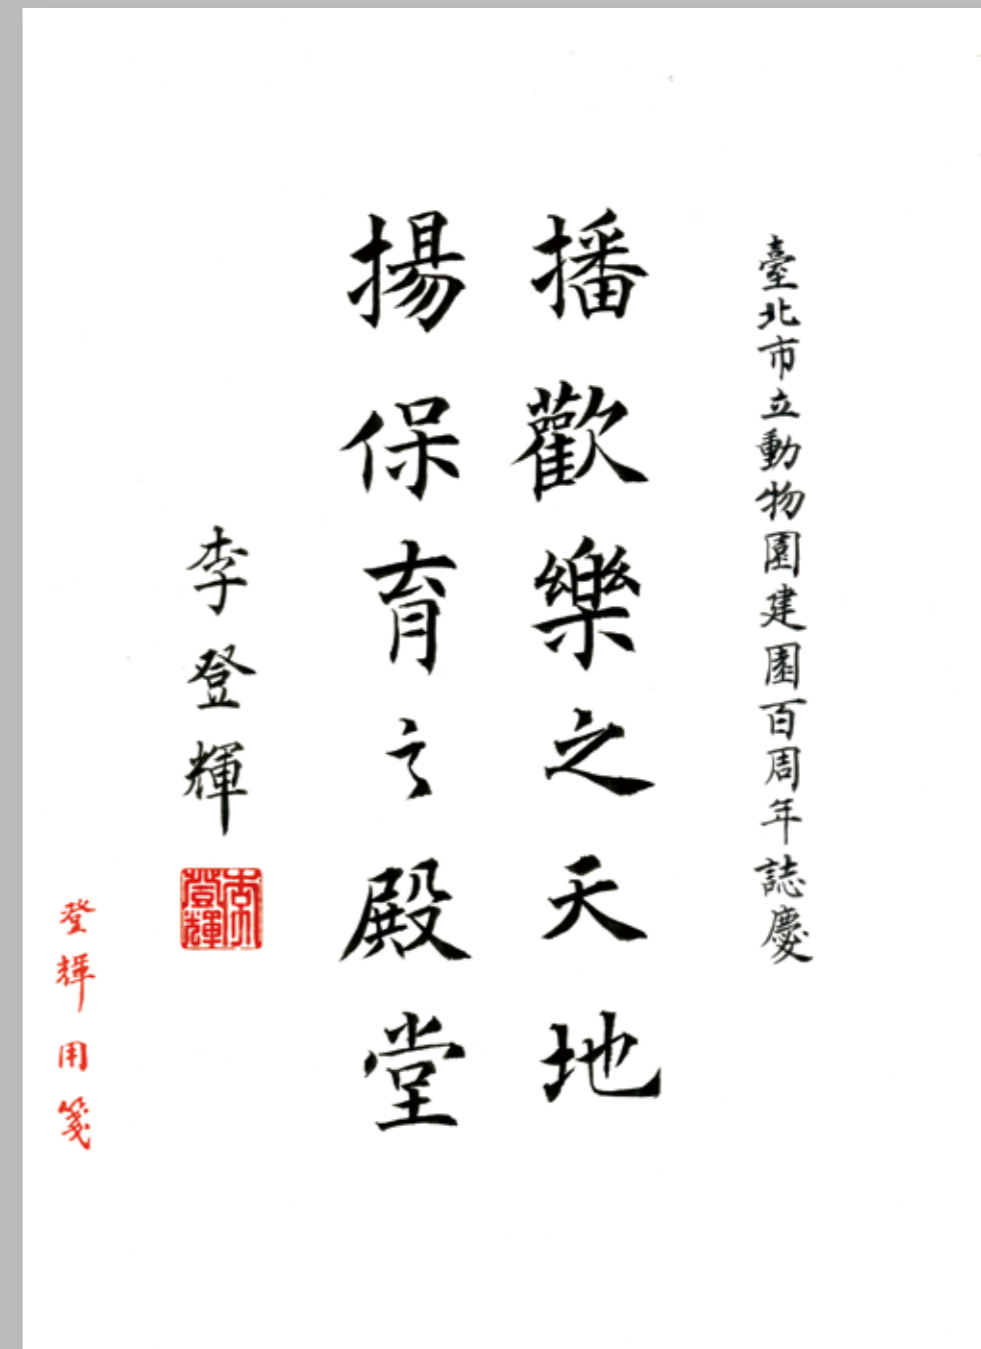 臺北市立動物園建園百周年誌慶
播歡樂之天地
揚保育之殿堂
李登輝
李登輝
登輝用箋